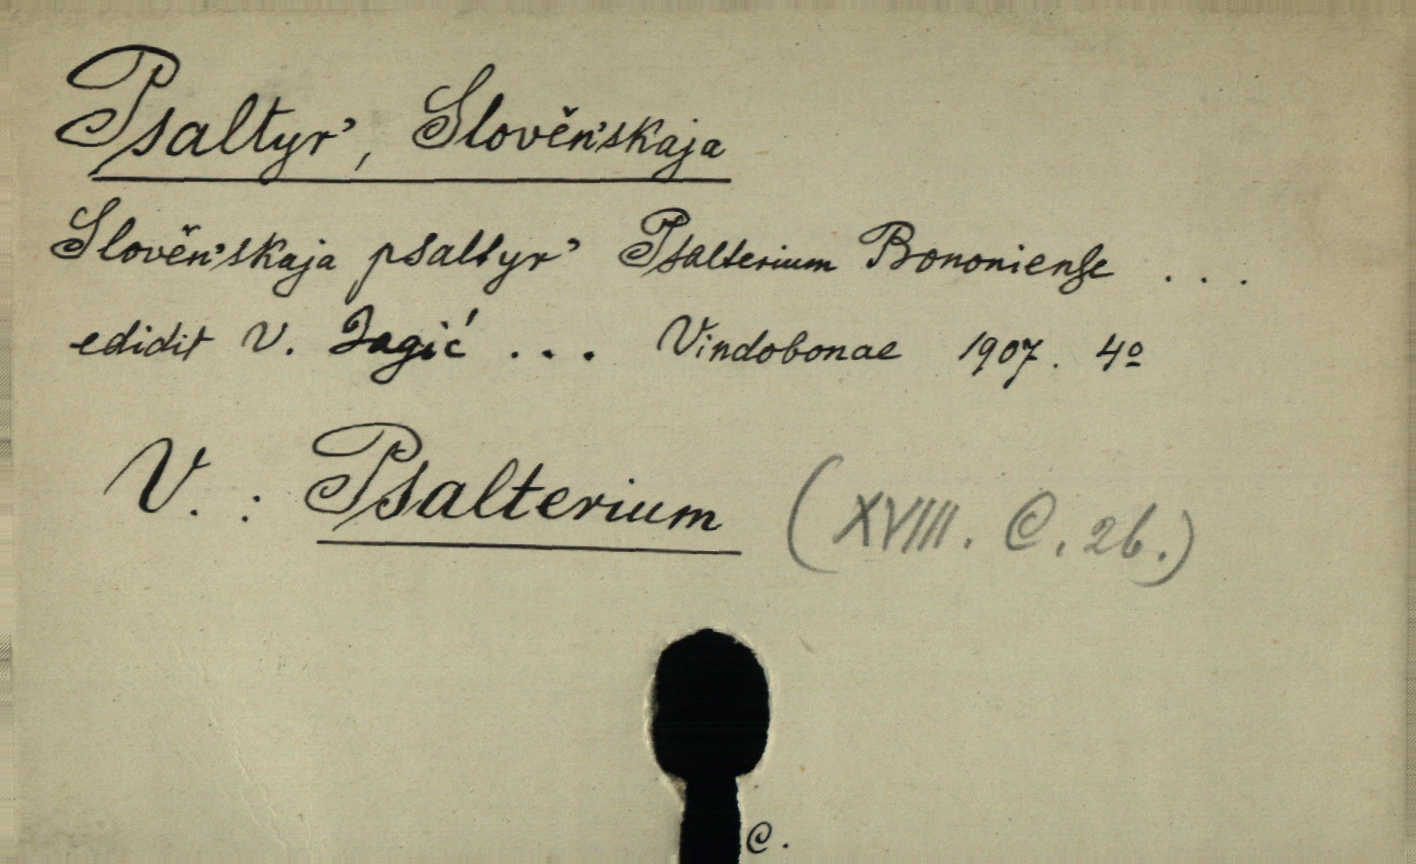 Psaltyr', Slověn'skaja
Slověn'skaja psaltyr' Psalterium Bononiense ...
edidit V. Jagić ... Vindobonae 1907. 4º
V. : Psalterium (XVIIII. C. 26.)
C.